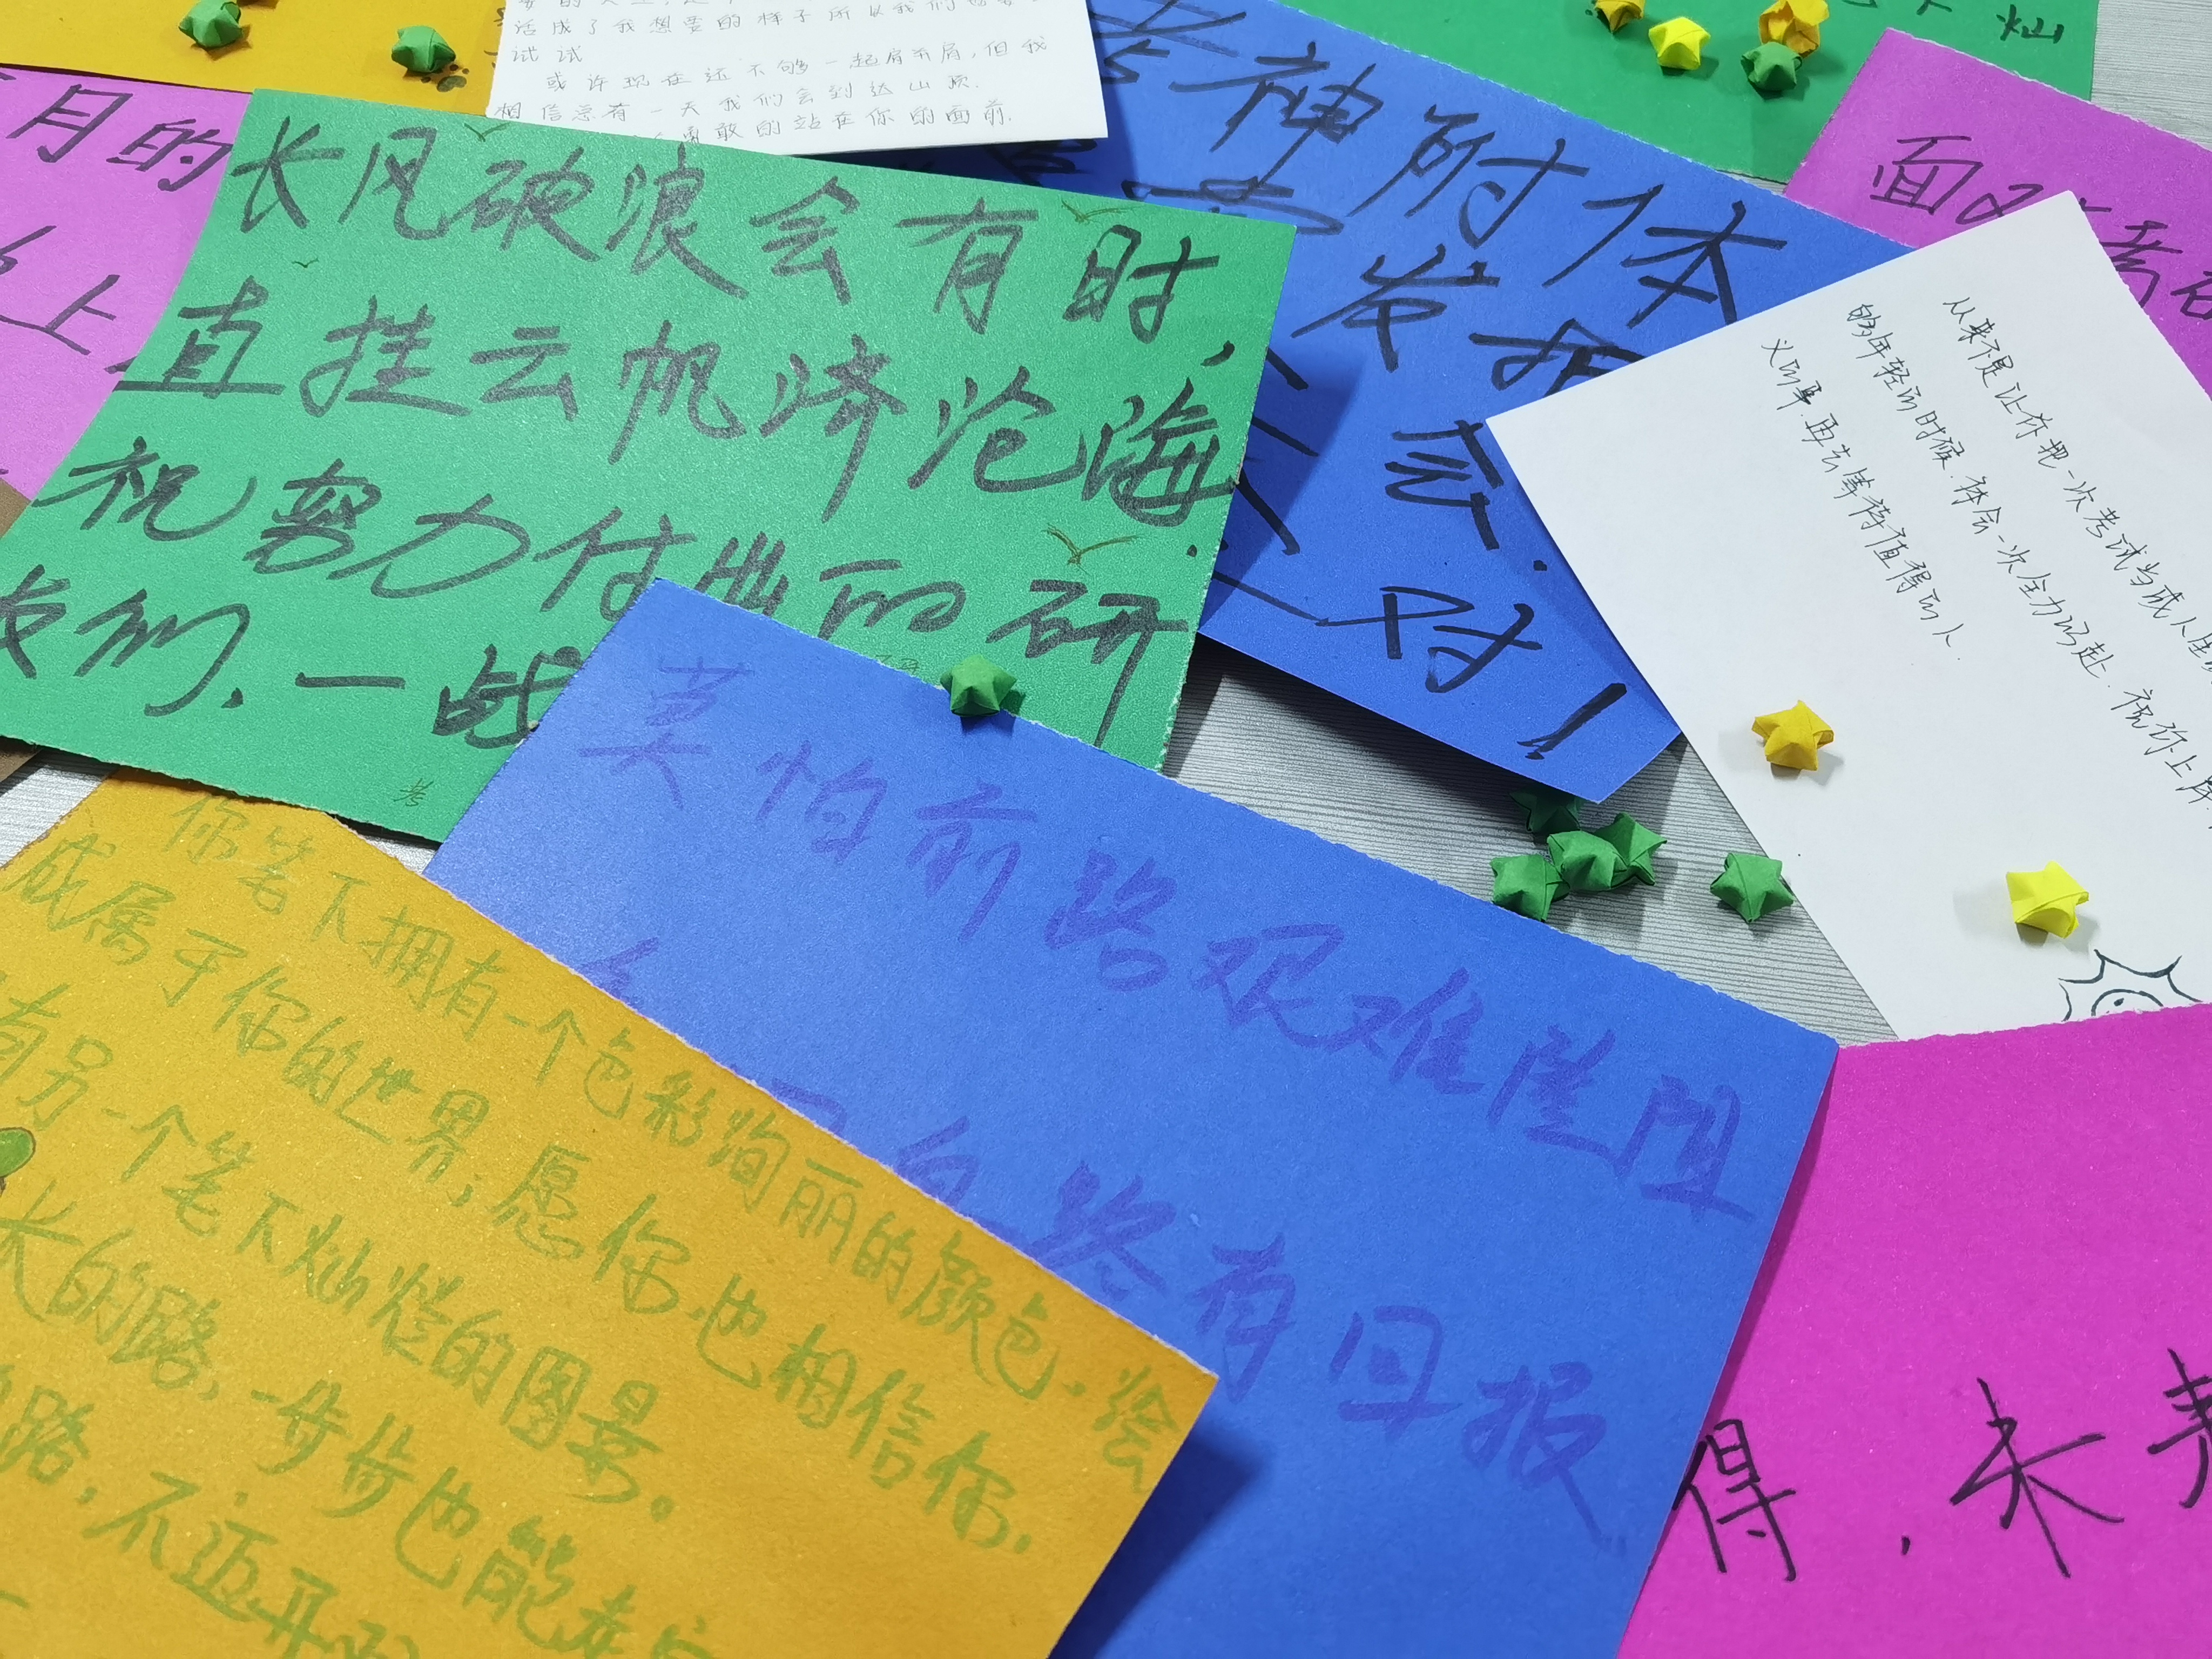 活成了我想要的样子所以我们也要
试试
或许现在还不够一起肩并肩,但我
相信总有一天我们会到达山顶.
勇敢的站在你的面前.
灿
月的
上
长风破浪会有时,
直挂云帆济沧海.
祝努力付出的研
友们.一战
考
考神附体
发挥
会.
对!
面对考研
从来不是让你把一次考试当成人生
够年轻的时候.体会一次全力以赴.祝你上岸.
义的事.再去等待值得的人.
莫怕前路艰难险阻
路有回报
你笔下拥有一个色彩绚丽的颜色.绘
成属于你的世界;愿你也相信你,
有另一个笔下灿烂的图景。
长的路,一步步也能走完
路,不迈开
得.未考